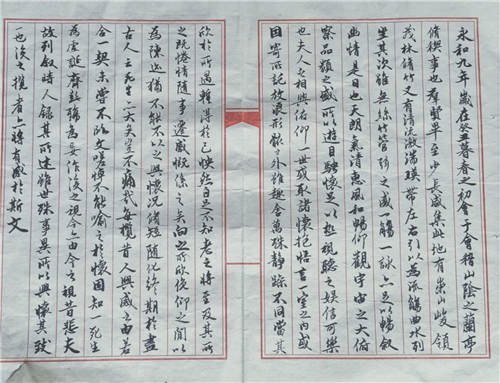 永和九年歲在癸丑暮春之初會于會稽山陰之蘭亭
脩稧事也群賢畢至少長咸集此地有崇山峻領
茂林脩竹又有清流激湍暎帶左右引以為流觴曲水列
坐其次雖無絲竹管弦之盛一觴一詠亦足以暢敘
幽情是日也天朗氣清惠風和暢仰觀宇宙之大俯
察品類之盛所以遊目騁懷足以極視聽之娛信可樂
也夫人之相與俯仰一世或取諸懷抱悟言一室之內或
因寄所託放浪形骸之外雖趣舍萬殊靜躁不同當其
欣於所遇暫得於己怏然自足不知老之將至及其所
之既惓情隨事遷感慨係之矣向之所欣俛仰之閒以
為陳迹猶不能不以之興懷況脩短隨化終期於盡
古人云死生亦大矣豈不痛哉每攬昔人興感之由若
合一契未嘗不臨文嗟悼不能喻之於懷固知一死生
為虛誕齊彭殤為妄作後之視今亦由今之視昔悲夫
故列敘時人錄其所述雖世殊事異所以興懷其致
一也後之攬者亦將有感於斯文